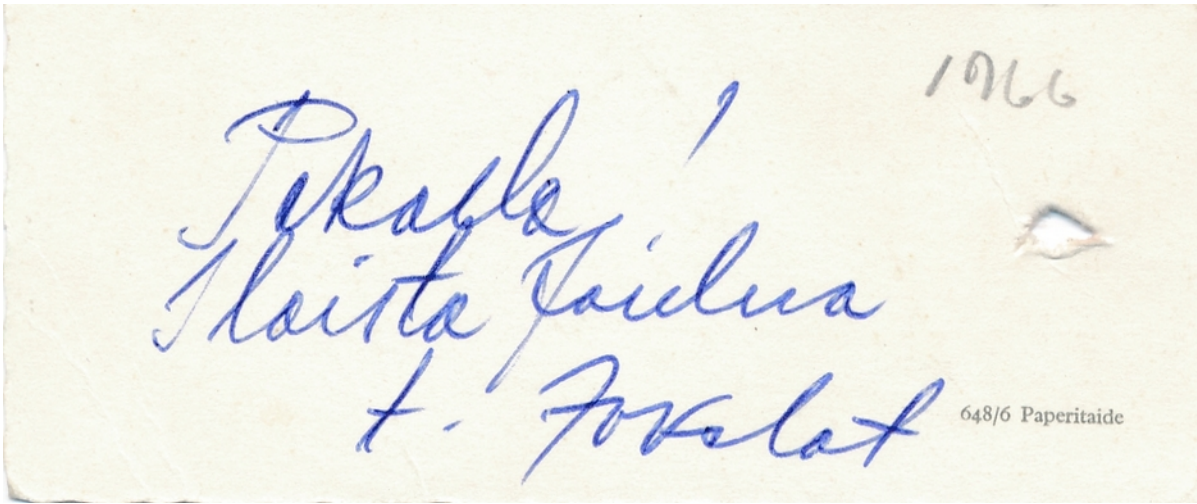 1966
Pekalle!
Iloista Joulua
t. Jokelat
648/6 Paperitaide